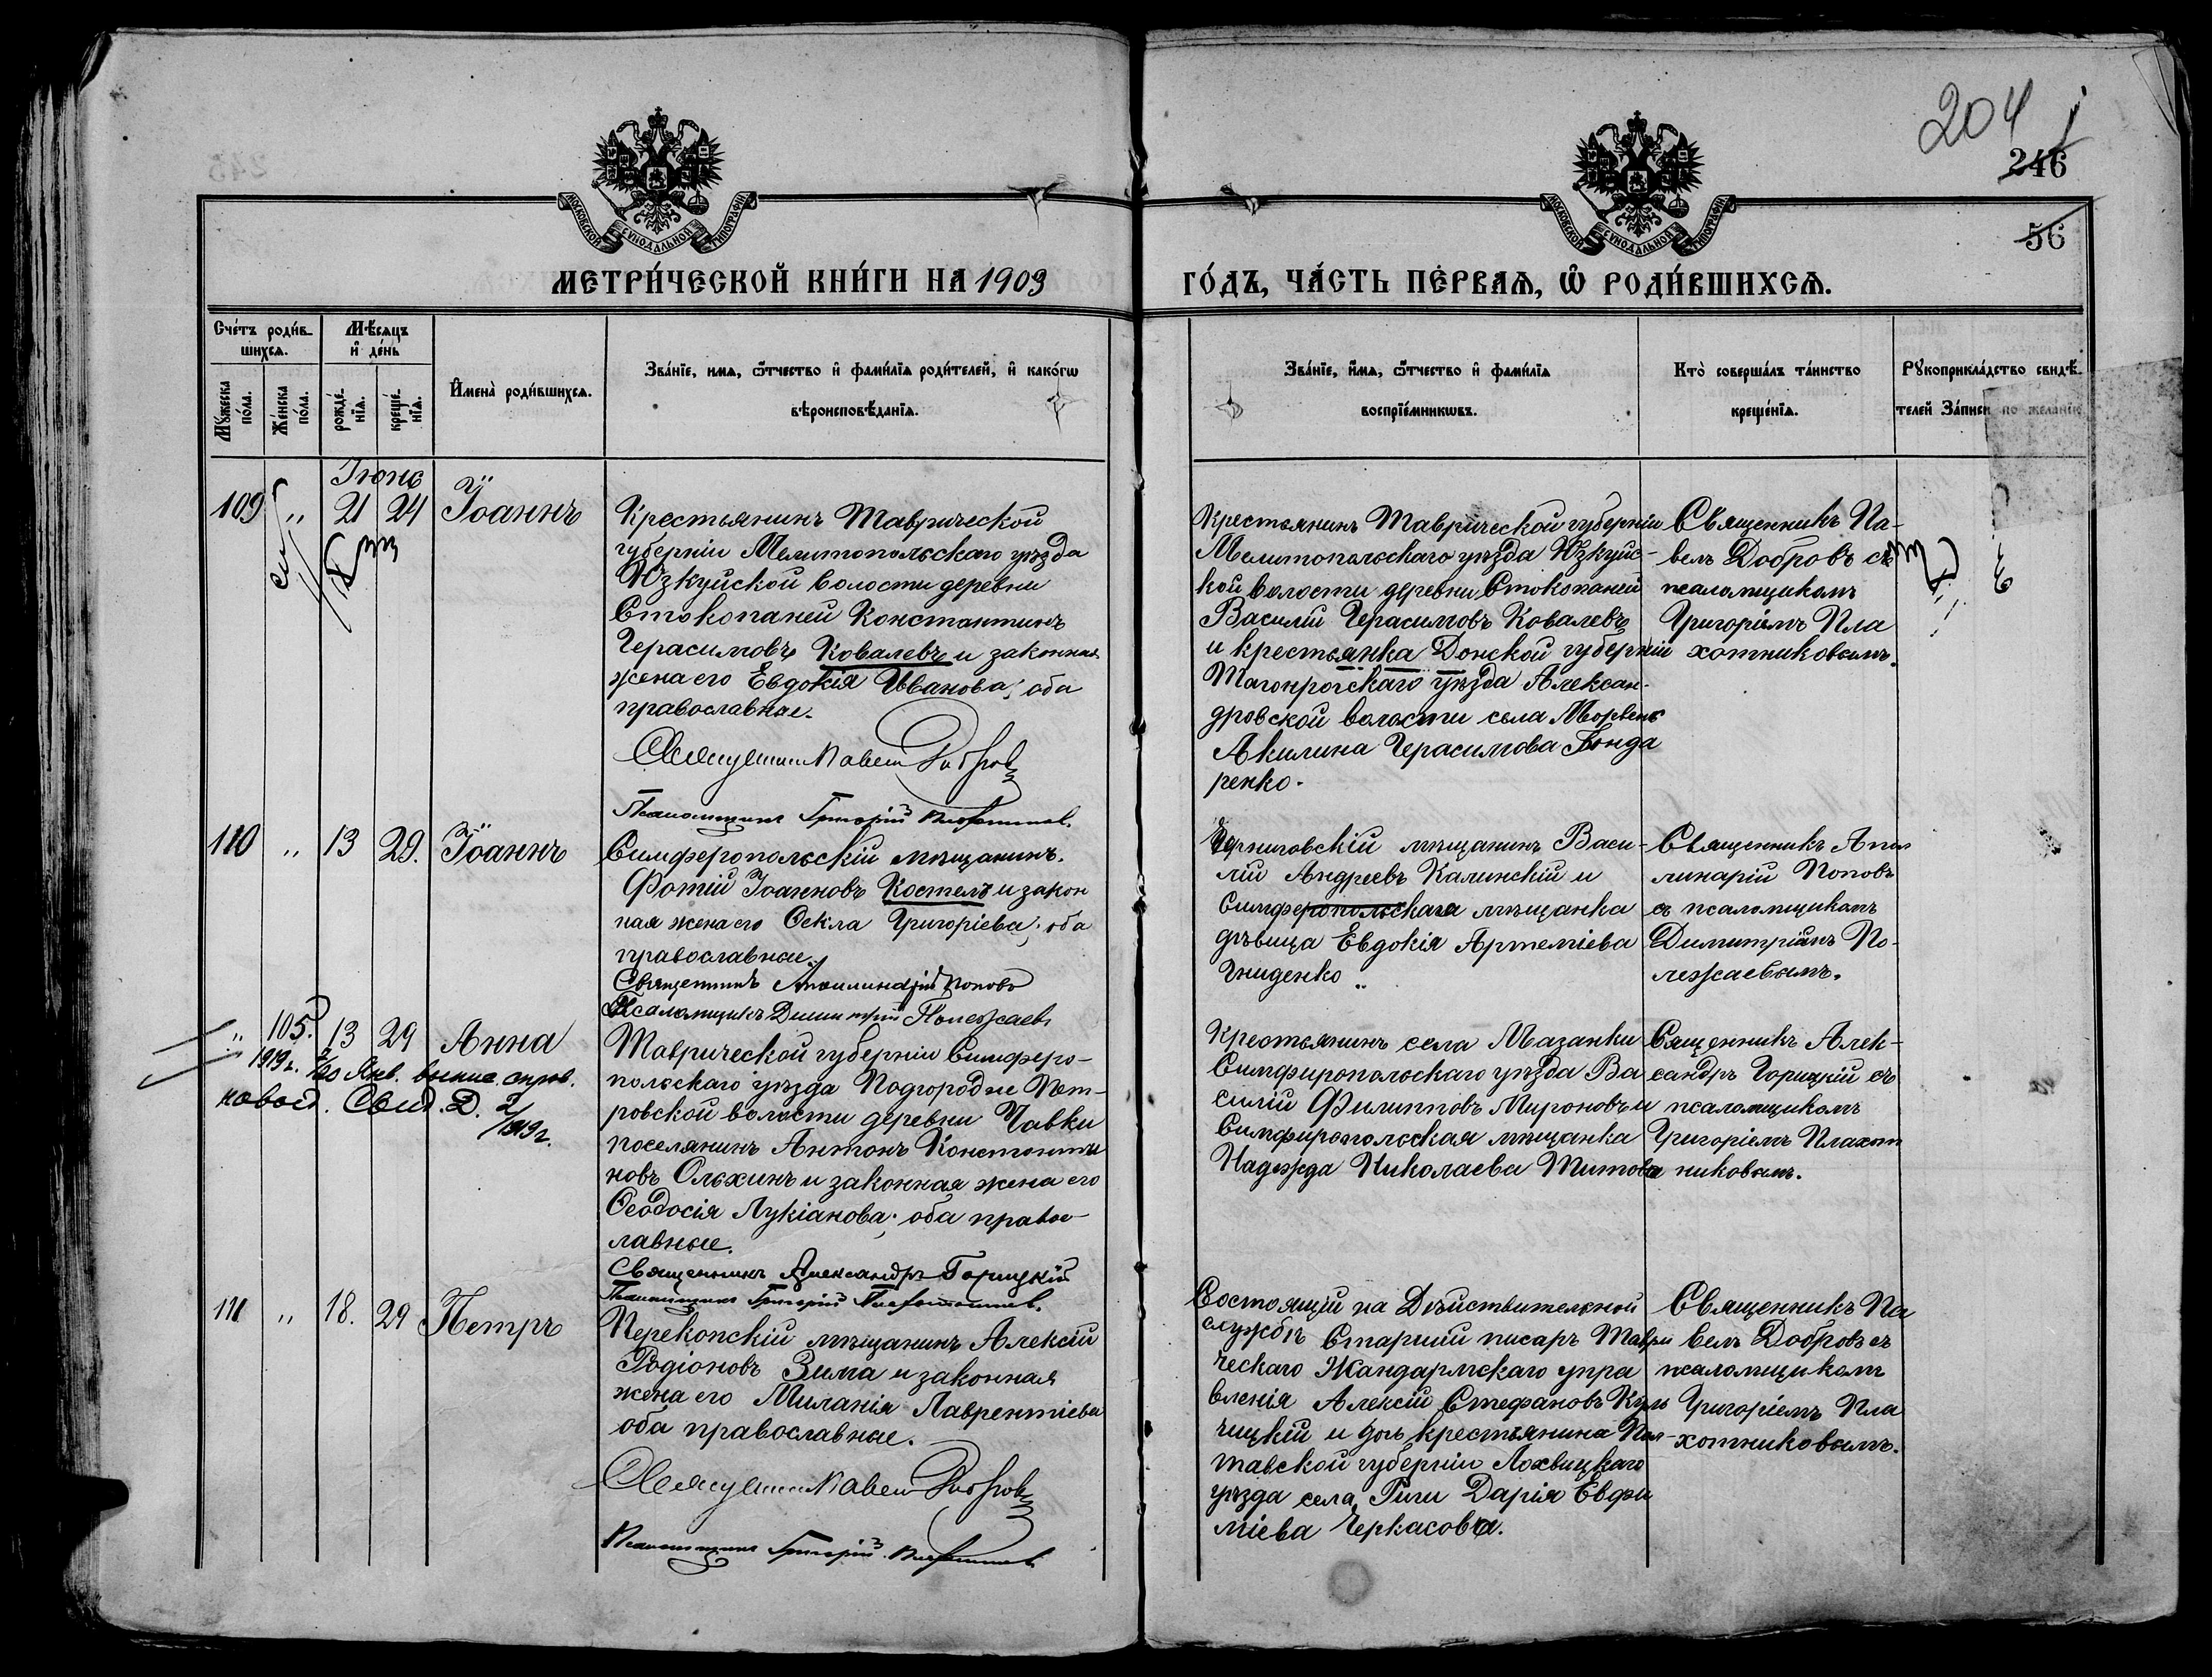 204
246
56
МОСКОВСКОЙ СѴНОДАЛЬНОЙ ТИПОГРАФІИ
МОСКОВСКОЙ СѴНОДАЛЬНОЙ ТИПОГРАФІИ
МЕТРИ́ЧЕСКОЙ КНИ́ГИ НА 1903
ГО́ДЪ, ЧА́СТЬ ПЕ́РВАѦ, Ѽ РОДИ́ВШИХСѦ.
Сче́тъ роди́в-
шихсѧ.
Мꙋ́жеска по́ла.
Же́нска по́ла.
Мѣ́сѧцъ
и҆ де́нь
рожде́-
нїѧ.
креще́-
нїѧ.
И҆мена̀ роди́вшихсѧ.
Зва́нїе, имѧ, ѻ҆́тчество и҆ фами́лїѧ роди́телей, и҆ како́гѡ
вѣроисповѣ́данїѧ.
Зва́нїе, и҆́мѧ, ѻ҆́тчество и҆ фами́лїѧ
воспрїе́мникѡвъ.
Кто̀ соверша́лъ та́инство
креще́нїѧ.
Рꙋкоприкла́дство свидѣ́-
телей За́писи по жела́нїю
Іюнь
109 " 21 24 Іоаннъ
Крестьянинъ Таврической
губерніи Мелитопольскаго уѣзда
Юзкуйской волости деревни
Стокопаней Константинъ
Герасимовъ Ковалевъ и законная
жена его Евдокія Иванова; оба
православные.
Священникъ Павелъ Добровъ
Псаломщикъ Григорій Плахотников.
Крестьянинъ Таврической губерніи
Мелитопольскаго уѣзда Юзкуйс-
кой волости деревни Стокопаней
Василій Герасимовъ Ковалевъ
и крестьянка Донской губерніи
Таганрогскаго уѣзда Алексан-
дровской волости села
Акилина Герасимова Бонда
ренко.
Священникъ Па-
велъ Добровъ съ
псаломщикомъ
Григоріемъ Пла
хотниковымъ.
110 " 13 29. Іоаннъ
Симферопольскій мѣщанинъ.
Фотій Іоанновъ Костелъ и закон
ная жена его Ѳекла Григоріева; оба
православные.
Священникъ Аполлинарій Поповъ
Псаломщикъ Димитрій Полежаевъ
Черниговскій мѣщанинъ Васи-
лій Андреевъ Калинскій и
Симферопольская мѣщанка
дѣвица Евдокія Артеміева
Гниденко.
Священникъ Апол
линарій Поповъ
съ псаломщикомъ
Димитріемъ По-
лежаевымъ.
" 105. 13 29 Анна
1919 г. 2/20 Янв. выпис. справ.
Свид. Д. 2/1919 г.
Таврической губерніи Симферо-
польскаго уѣзда Подгородне Пет-
ровской волости деревни Чавки
поселянинъ Антонъ Константи
новъ Ольхинъ и законная жена его
Ѳеодосія Лукіанова; оба правос-
лавные.
Священникъ Александръ Горицкій
Псаломщикъ Григорій Плахотников.
Крестьянинъ села Мазанки
Симфиропольскаго уѣзда Ва
силій Филипповъ Мироновъ и
Симфиропольская мѣщанка
Надежда Николаева Титова
Священникъ Алек-
сандръ Горицкій съ
псаломщикомъ
Григоріемъ Плахот
никовымъ.
111 " 18. 29 Петръ
Перекопскій мѣщанинъ Алексій
Родіоновъ Зима и законная
жена его Миланія Лаврентіева
оба православные.
Священникъ Павелъ Добровъ
Псаломщикъ Григорій Плахотников
Состоящій на Дѣйствительной
службѣ Старшій писарь Таври
ческаго Жандармскаго упра
вленія Алексій Стефановъ Куль
чицкій и дочь крестьянина Пол-
тавской губерніи Лохвицкаго
уѣзда села Гиги Дарія Евфи
міева Черкасова.
Священникъ Па
велъ Добровъ съ
псаломщикомъ
Григоріемъ Пла
хотниковымъ.